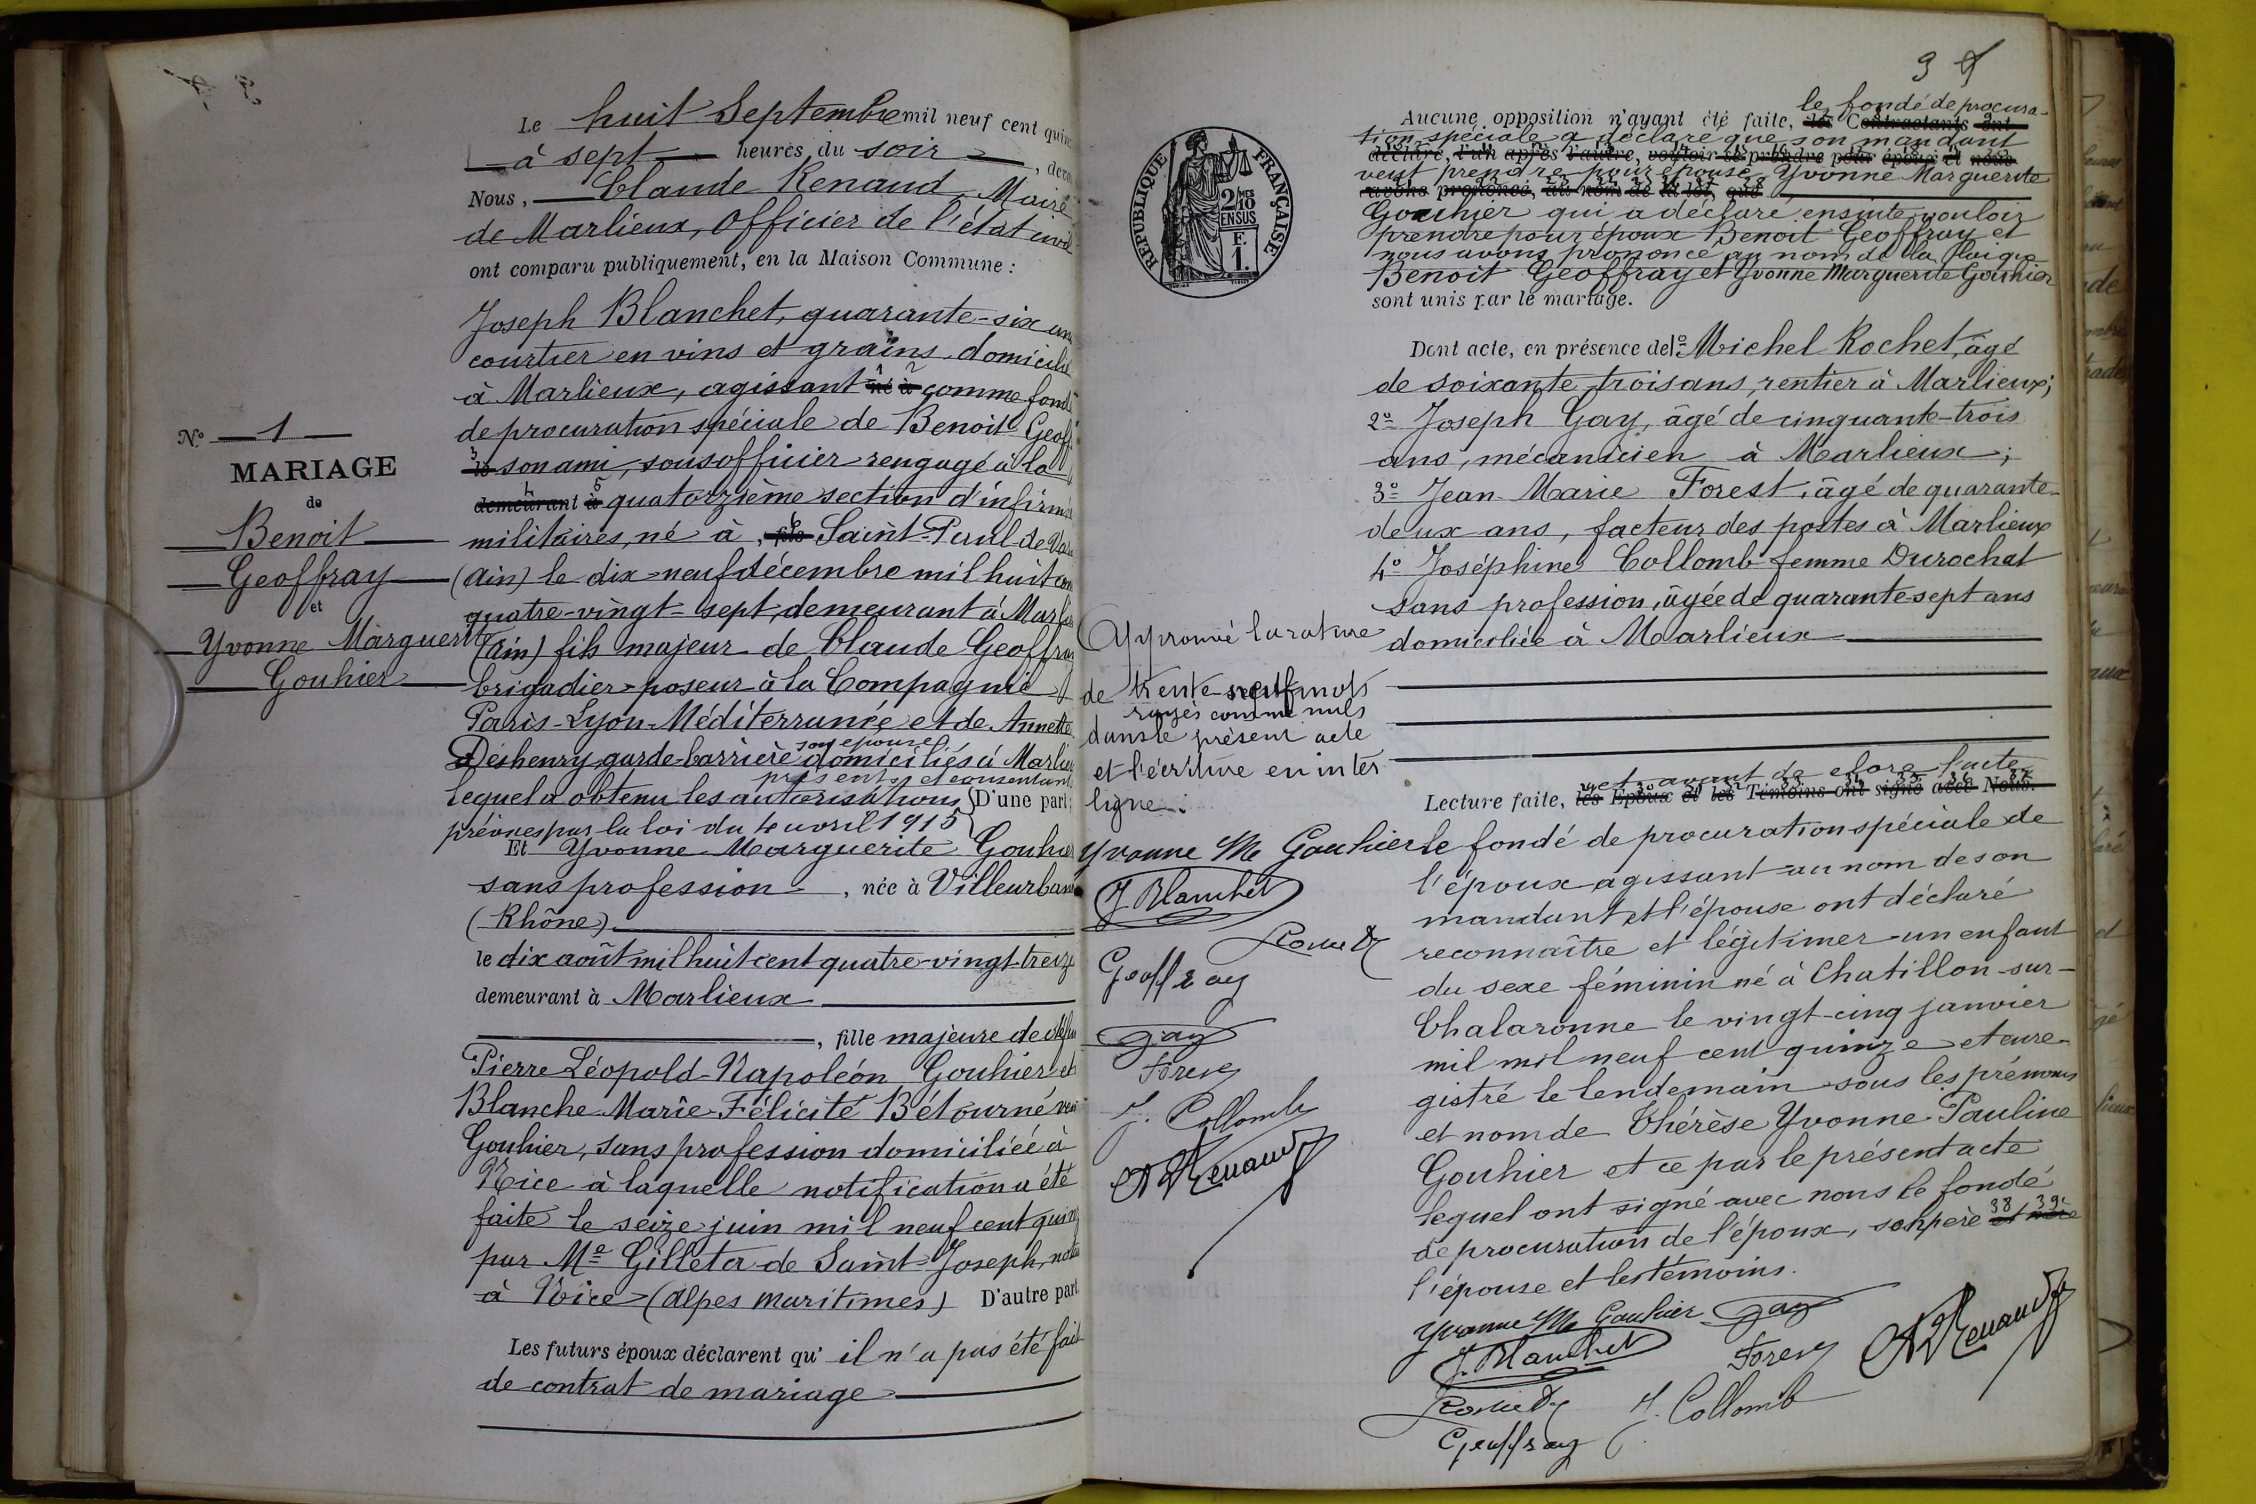 Le huit Septembre mil neuf cent quin
à sept heures du soir, deva
Nous, Claude Renaud, Maire
de Marlieux, Officier de l'état civil
ont comparu publiquement, en la Maison Commune :
Joseph Blanchet, quarante-six ans
courtier en vins et grains domicilié
à Marlieux, agissant né à comme fondé
de procuration spéciale de Benoit Geoff
son ami, sous officier rengagé à la
demeurant à quatorzième section d'infirmi
militaires, né à, fils Saint-Paul de Vara
(Ain) le dix-neuf décembre mil huit cen
quatre-vingt-sept, demeurant à Marlieu
(Ain) fils majeur de Claude Geoffray
brigadier-poseur à la Compagnie
Paris-Lyon-Méditerranée et de Annette
Deshenry, garde-barrière son épouse domiciliés à Marlieu
présents et consentants
lequel a obtenu les autorisations D'une part;
prévues par la loi du 4 avril 1915
Et Yvonne Marguerite Gouhier
sans profession, née à Villeurbanne
(Rhône)
le dix août mil huit cent quatre-vingt-treize
demeurant à Marlieux
, fille majeure de défun
Pierre Léopold-Napoléon Gouhier et
Blanche Marie Félicité Bétourné veuv
Gouhier, sans profession domiciliée à
Nice à laquelle notification a été
faite le seize juin mil neuf cent quinz
par Me Gilleta de Saint-Joseph, nota
à Nice (Alpes maritimes) D'autre part
Les futurs époux déclarent qu' il n'a pas été fait
de contrat de mariage
No 1
MARIAGE
de
Benoit
Geoffray
et
Yvonne Marguerite
Gouhier
RÉPUBLIQUE FRANÇAISE
2 MES
10
EN SUS
F.
1.
9
le fondé de procura-
Aucune opposition n'ayant été faite, les Contractants ont
tion spéciale a déclaré que son mandant
déclaré, l'un après l'autre, vouloir se prendre pour époux et nous
veut prendre pour épouse Yvonne Marguerite
avons prononcé, au nom de la loi, que
Gouhier qui a déclaré ensuite vouloir
prendre pour époux Benoit Geoffray et
nous avons prononcé au nom de la loi que
Benoit Geoffray et Yvonne Marguerite Gouhier
sont unis par le mariage.
Dont acte, en présence de 1o Michel Rochet, âgé
de soixante-trois ans, rentier à Marlieux;
2o Joseph Gay, âgé de cinquante-trois
ans, mécanicien à Marlieux;
3o Jean-Marie Forest, âgé de quarante-
deux ans, facteur des postes à Marlieux
4o Joséphine Collomb femme Durochat
sans profession, âgée de quarante-sept ans
domiciliée à Marlieux
et avant de clore l'acte
Lecture faite, les Epoux et les Témoins ont signé avec Nous.
le fondé de procuration spéciale de
l'époux agissant au nom de son
mandant et l'épouse ont déclaré
reconnaître et légitimer un enfant
du sexe féminin né à Chatillon-sur-
Chalaronne le vingt-cinq janvier
mil mil neuf cent quinze et enre-
gistré le lendemain sous les prénoms
et nom de Thérèse Yvonne Pauline
Gouhier et ce par le présent acte
lequel ont signé avec nous le fondé
de procuration de l'époux, son père et mère
38 39
l'épouse et les témoins.
Yvonne Me Gouhier Gay
J. Blanchet Forest A Renaud
Rochet J. Collomb
Geoffray
Approuvé la rature
de trente-neuf mots
rayés comme nuls
dans le présent acte
et l'écriture en inter
ligne.
Yvonne Me Gouhier
J. Blanchet
Rochet
Geoffray
Gay
Forest
J. Collomb
A Renaud